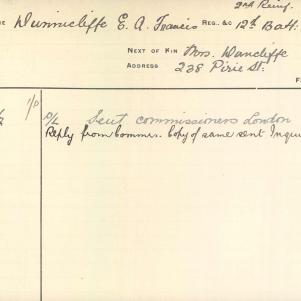 2nd Reinf.
ME Dunnicliffe E. A. Francis REG. &C 12th Batt:
NEXT OF KIN Mrs. Duncliffe
ADDRESS 238 Pirie St.
F
1/0
D/L Sent commissioners London
Reply from Commrs. Copy of same sent Inqui